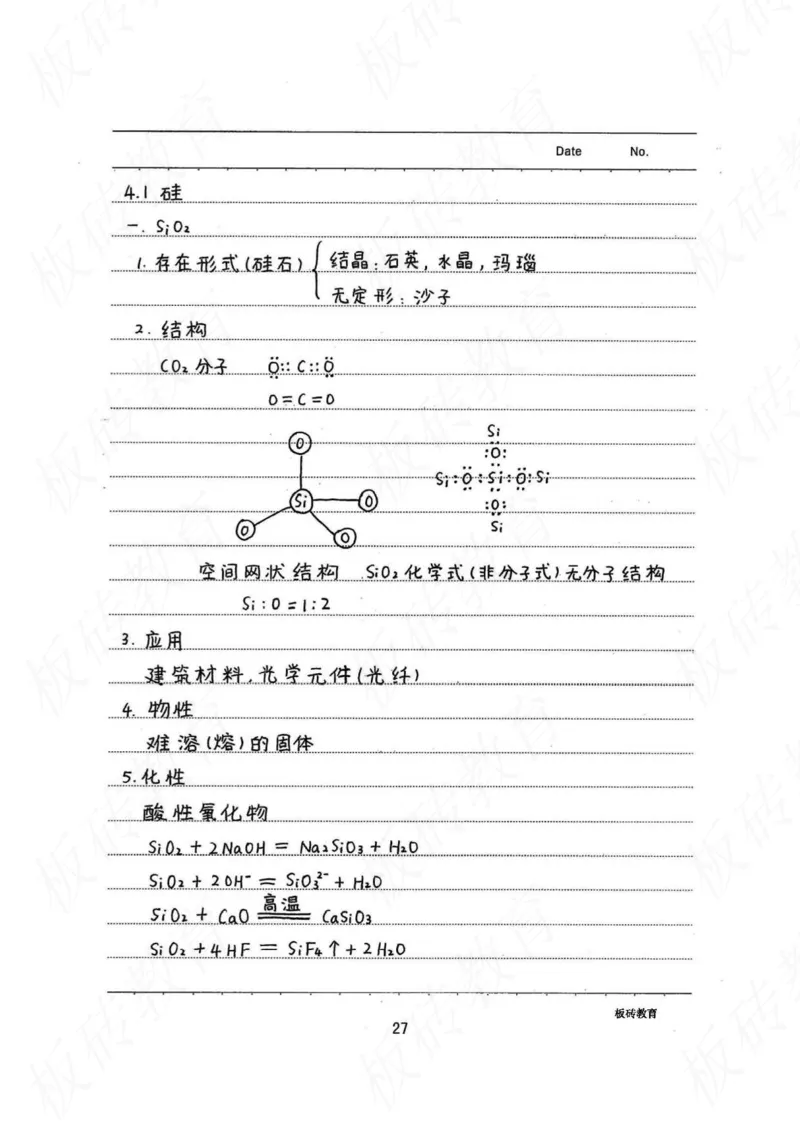 Date No.
4.1 硅
一. SiO₂
1. 存在形式(硅石) { 结晶:石英,水晶,玛瑙
无定形:沙子
2. 结构
CO₂分子 Ö:: C::Ö
O=C=O
O
Si
O
O
O
Si
:O:
Si:O:Si:O:Si
:O:
Si
空间网状结构 SiO₂化学式(非分子式)无分子结构
Si:O=1:2
3. 应用
建筑材料,光学元件(光纤)
4. 物性
难溶(熔)的固体
5.化性
酸性氧化物
SiO₂+2NaOH = Na₂SiO₃+H₂O
SiO₂+2OH⁻ = SiO₃²⁻+H₂O
SiO₂+CaO 高温 CaSiO₃
SiO₂+4HF = SiF₄↑+2H₂O
板砖教育
27